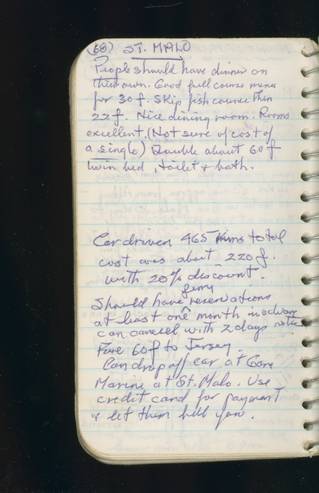 (68) ST. MALO
People should have dinner on
their own. Good full course menu
for 30 f. Skip fish course then
22 f. Nice dining room. Rooms
excellent. (Not sure of cost of
a single) Double about 60 f
twin bed, toilet & bath.
Car driven 465 kms total
cost was about 220 f.
with 20% discount.
ferry
Should have reservations
at least one month in advance
can cancel with 2 days notice
Fare 60 f to Jersey.
Can drop off car at Gare
Marine at St. Malo. Use
credit card for payment
& let them bill you.